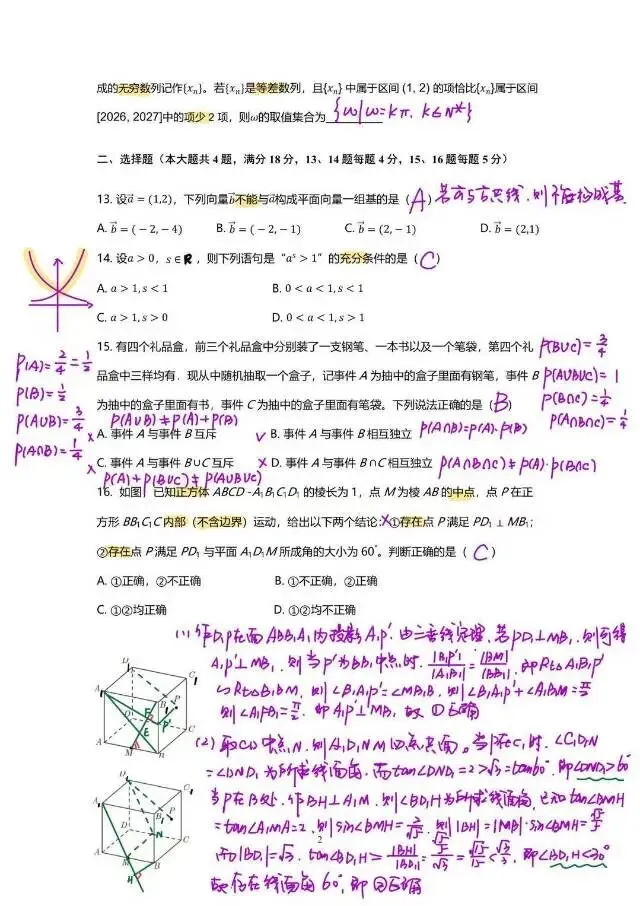 成的无穷数列记作{xₙ}。若{xₙ}是等差数列，且{xₙ} 中属于区间 (1, 2) 的项恰比{xₙ}属于区间
[2026, 2027]中的项少 2 项，则ω的取值集合为 {ω|ω=kπ, k∈N*}
二、选择题（本大题共 4 题，满分 18 分，13、14 题每题 4 分，15、16 题每题 5 分）
13. 设a⃗ = (1,2)，下列向量b⃗不能与a⃗构成平面向量一组基的是（ A ）若a⃗与b⃗共线，则不能构成基
A. b⃗ = (−2, −4) B. b⃗ = (−2, −1) C. b⃗ = (2, −1) D. b⃗ = (2,1)
14. 设a > 0，s ∈ R，则下列语句是 “aˢ > 1” 的充分条件的是（ C ）
A. a > 1, s < 1 B. 0 < a < 1, s < 1
C. a > 1, s > 0 D. 0 < a < 1, s > 1
15. 有四个礼品盒，前三个礼品盒中分别装了一支钢笔、一本书以及一个笔袋，第四个礼
品盒中三样均有. 现从中随机抽取一个盒子，记事件 A 为抽中的盒子里面有钢笔，事件 B
为抽中的盒子里面有书，事件 C 为抽中的盒子里面有笔袋。下列说法正确的是（ B ）
P(A)=2/4=1/2
P(B)=1/2
P(A∪B)=3/4
P(A∩B)=1/4
P(B∪C)=3/4
P(A∪B∪C)=1
P(B∩C)=1/4
P(A∩B∩C)=1/4
P(A∪B)≠P(A)+P(B)
× A. 事件 A 与事件 B 互斥 √ B. 事件 A 与事件 B 相互独立 P(A∩B)=P(A)·P(B)
× C. 事件 A 与事件 B∪C 互斥 × D. 事件 A 与事件 B∩C 相互独立 P(A∩B∩C)≠P(A)·P(B∩C)
P(A)+P(B∪C)≠P(A∪B∪C)
16. 如图，已知正方体 ABCD - A₁B₁C₁D₁ 的棱长为 1，点 M 为棱 AB 的中点，点 P 在正
方形 BB₁C₁C 内部（不含边界）运动，给出以下两个结论：①存在点 P 满足 PD₁ ⊥ MB₁；
②存在点 P 满足 PD₁ 与平面 A₁D₁M 所成角的大小为 60°。判断正确的是（ C ）
A. ①正确，②不正确 B. ①不正确，②正确
C. ①②均正确 D. ①②均不正确
(1) 作D₁P在面ABB₁A₁内投影A₁P'. 由三垂线定理，若PD₁⊥MB₁, 则可得
A₁P'⊥MB₁. 则当P'为BB₁中点时. |B₁P'|/|A₁B₁|=|BM|/|BB₁|. 即Rt△A₁B₁P'
∽Rt△B₁BM, 则∠B₁A₁P'=∠MB₁B. 则∠B₁A₁P'+∠A₁B₁M=π/2
即A₁P'⊥MB₁, 故①正确
(2) 取CD中点N. 则A₁D₁NM四点共面。当P在C₁时. ∠C₁D₁N
=∠DND₁为所求线面角. 而tan∠DND₁=2>√3=tan60°. 即∠DND₁>60°
当P在B处. 作BH⊥A₁M. 则∠BD₁H为所求线面角. 已知tan∠BMH
=tan∠A₁MA=2. 则sin∠BMH=2/√5. 则|BH|=|MB|·sin∠BMH=√5/5
而|BD₁|=√3. 即∠BD₁H<30°
故存在线面角60°, 即②正确
2